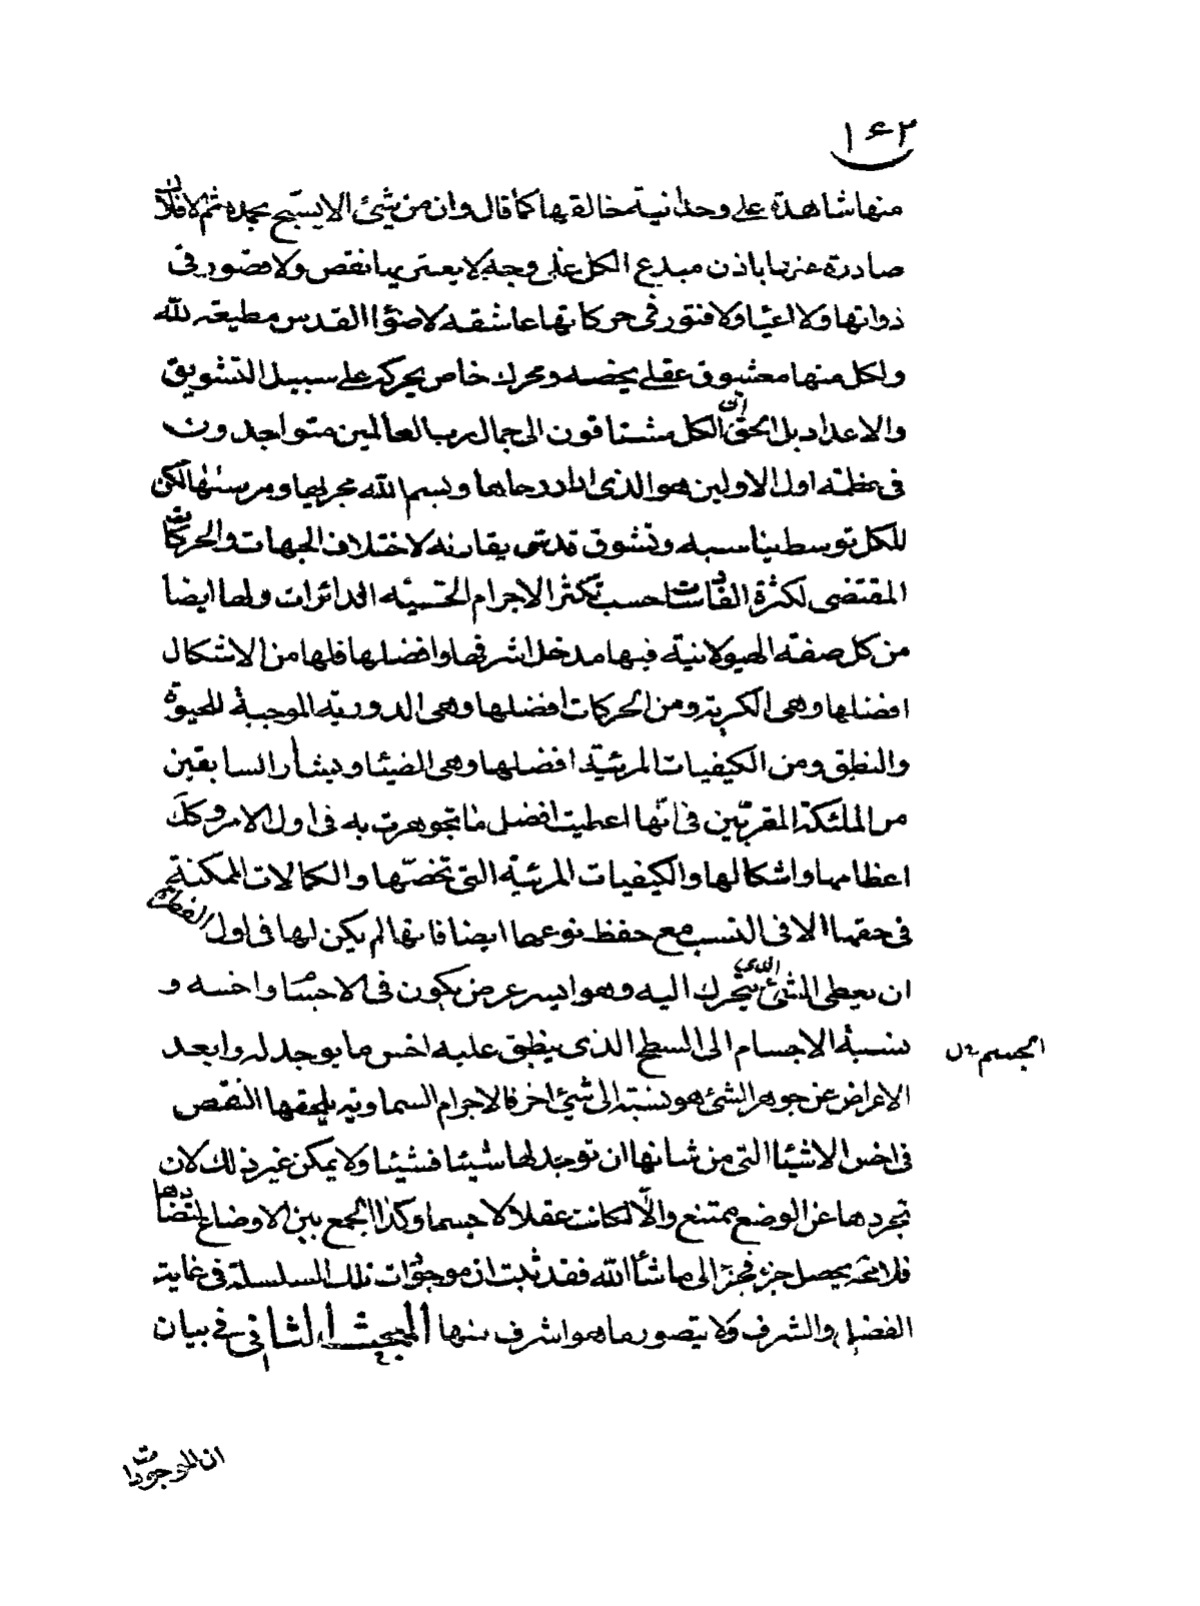 ١٤٢
منها شاهدة على وحدانية خالقها كما قال وان من شئ الا يسبح بحمده ثم الافلاك
صادرة عنها باذن مبدع الكل على وجه لا يعتريها نقص ولا قصور فى
ذواتها ولا اعيا ولا فتور فى حركاتها عاشقة لاضوا القدس مطيعة لله
ولكل منها معشوق عقلى يخصه ومحرك خاص يحركه على سبيل التشويق
والاعداد بل الحق ان الكل مشتاقون الى جمال رب العالمين متواجدون
فى عظمة اول الاولين هو الذى ادار رحاها وبسم الله مجريها ومرسيها لكن
للكل توسط يناسبه وتشوق قدسى يقارنه لاختلاف الجهات والحركات
المقتضى لكثرة القادسات حسب تكثر الاجرام الحسية الدائرات ولها ايضا
من كل صفة الهيولانية فيها مدخل اشرفها وافضلها فلها من الاشكال
افضلها وهى الكرية ومن الحركات افضلها وهى الدورية الموجبة للحيوة
والنطق ومن الكيفيات المرئية افضلها وهى الضيا ويشارك السابقين
من الملئكة المقربين فى انها اعطيت افضل ما تجوهرت به فى اول الامر وكذا
اعظامها واشكالها والكيفيات المرئية التى تخصها والكمالات الممكنة
فى حقها الا فى النسب مع حفظ نوعها ايضا فانها لم يكن لها فى اول الفطرة
ان يعطى الشئ الذى يتحرك اليه وهو ايسر عرض يكون فى الاجسام واخسه و
نسبة الاجسام الى السطح الذى ينطبق عليه اخس ما يوجد له وابعد
الجسم ل
الاعراض عن جوهر الشئ هو نسبته الى شئ اخر فالاجرام السماوية يلحقها النقص
فى اخس الاشيا التى من شانها ان توجد لها شيئا فشيئا ولا يمكن غير ذلك لان
تجردها عن الوضع ممتنع والا لكانت عقلا لا جسما وكذا الجمع بين الاوضاع لتضادها
فلا محة يحصل جزء فجزء الى ما شاء الله فقد ثبت ان موجودات تلك السلسلة فى غاية
الفضل والشرف ولا يتصور ما هو اشرف منها المبحث الثانى فى بيان
ان الموجودات